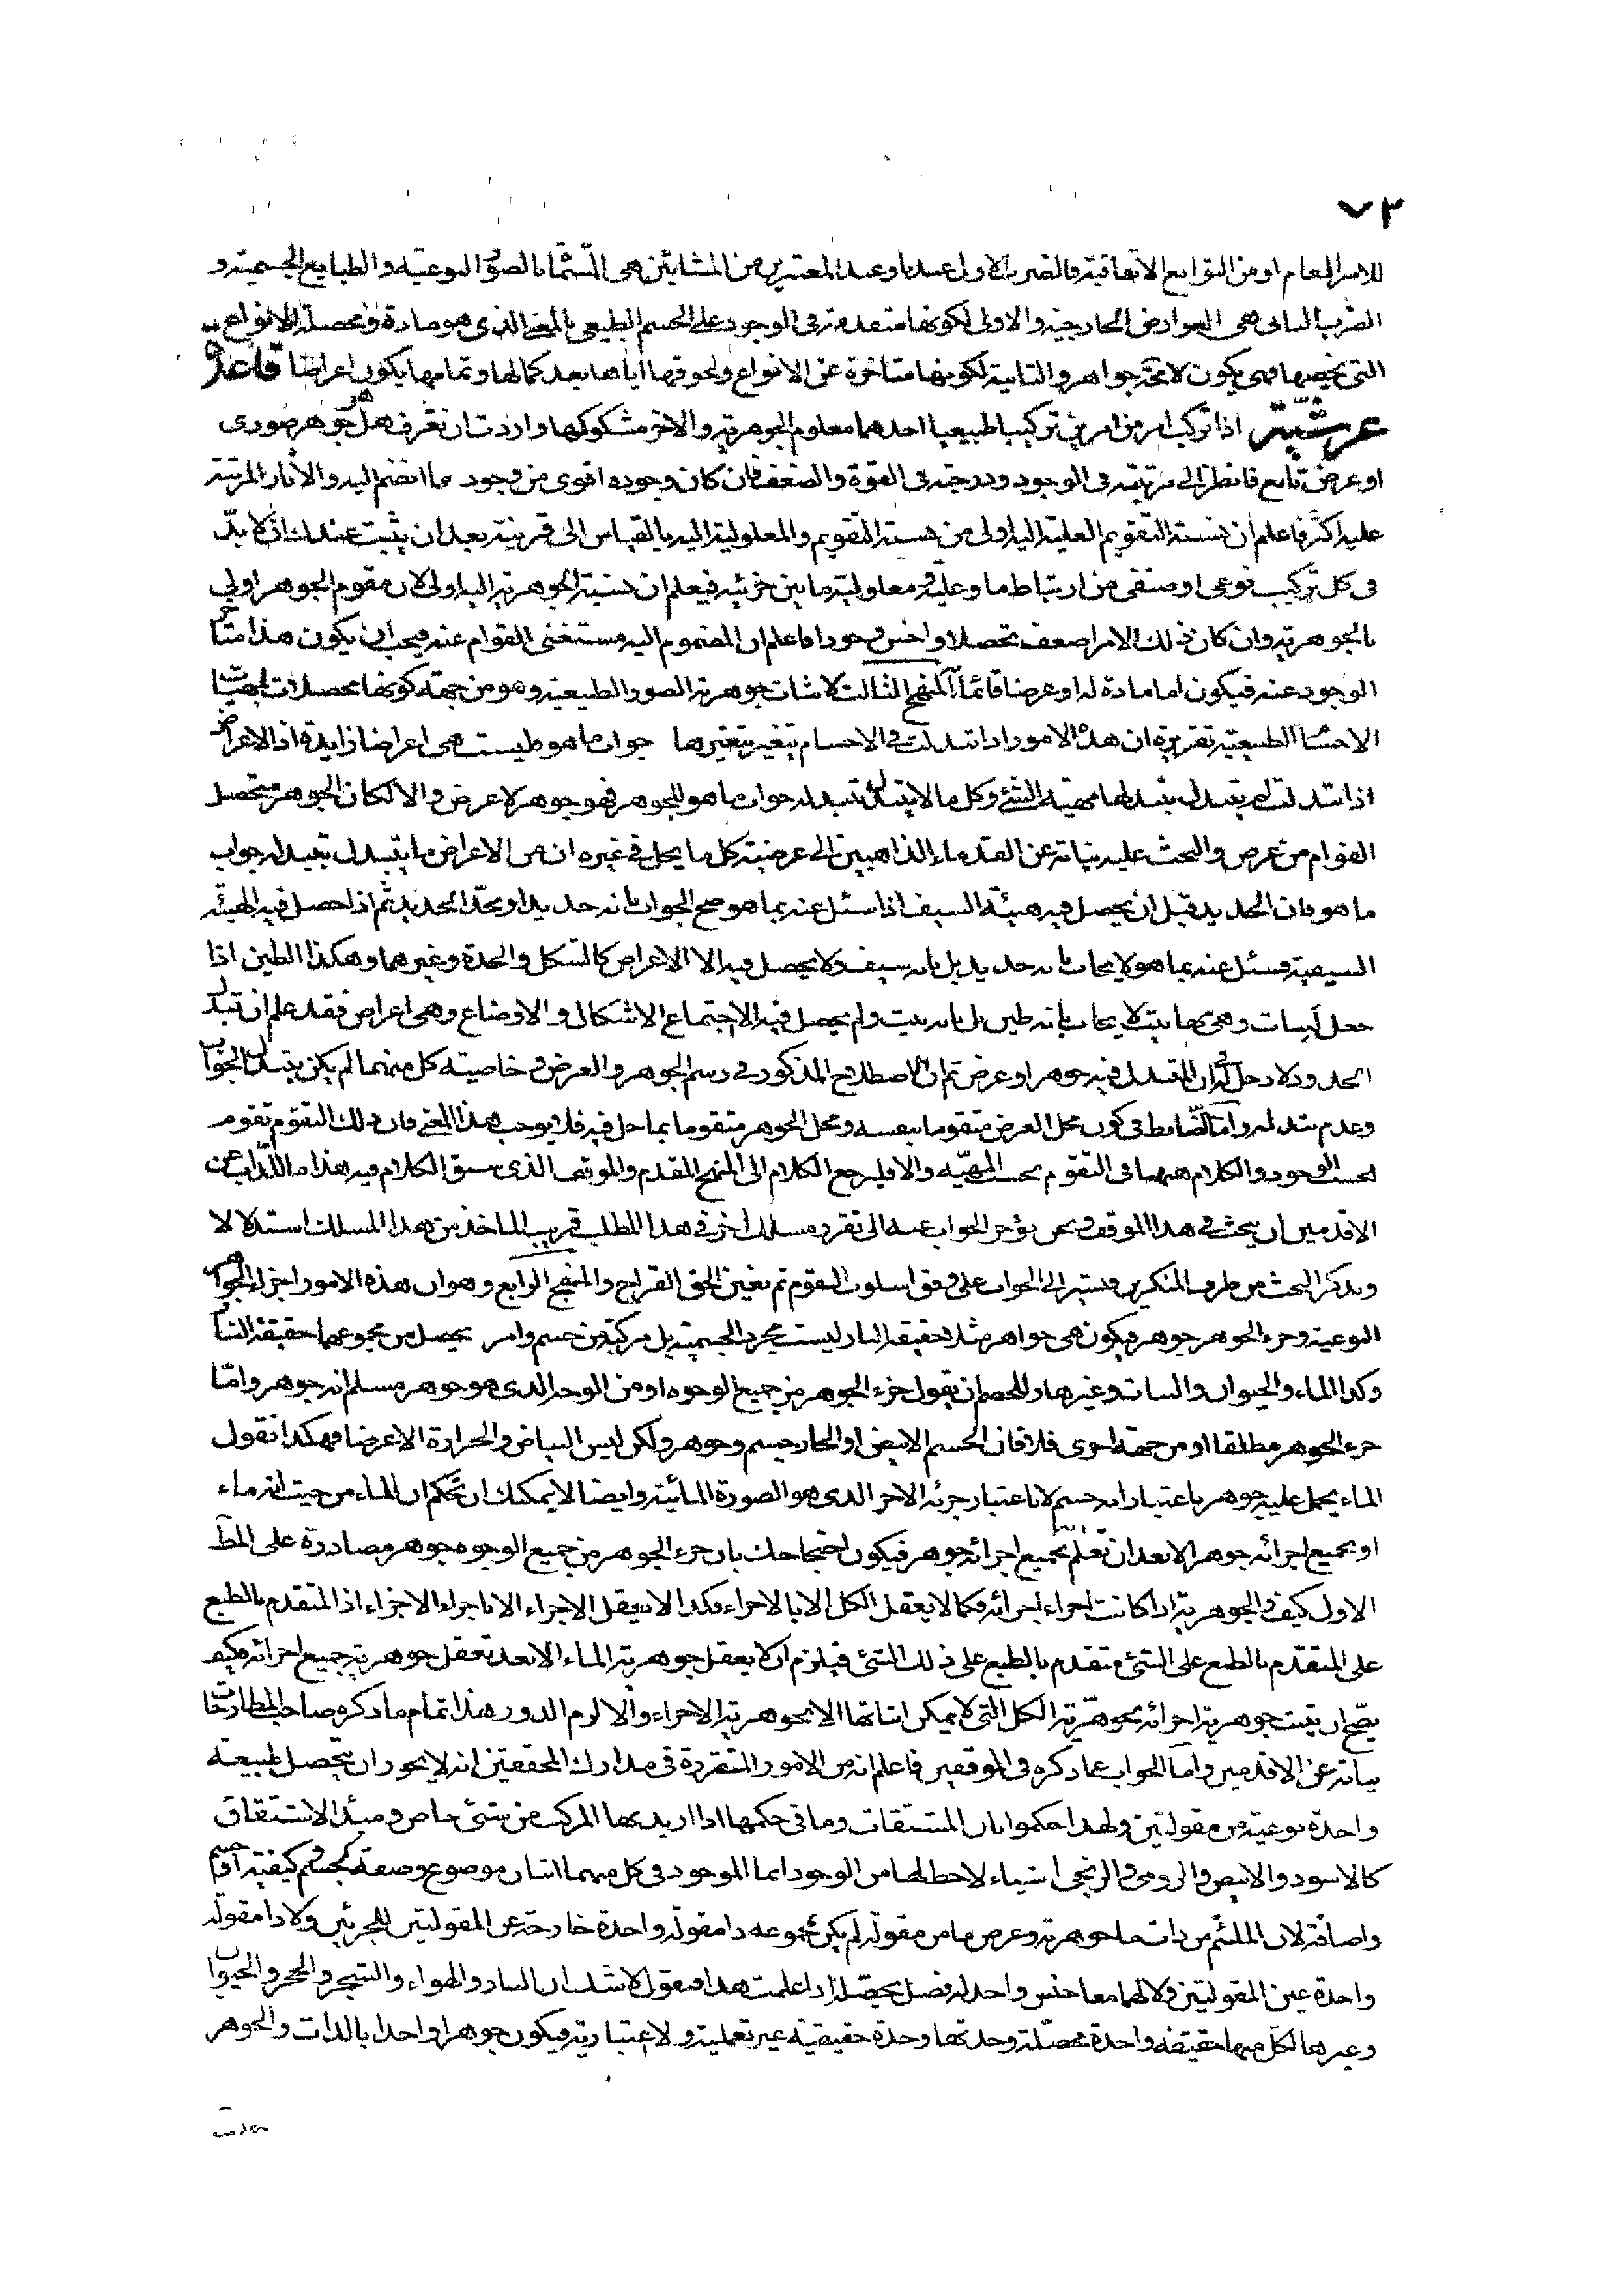 ٧٢
للامر العام او من التوابع الاتفاقية فالضرب الاول عندنا وعند المعتبرين من المشائين هى المسماة بالصور النوعية والطبايع الجسمية و
الضرب الثانى هى العوارض الخارجية والاولى لكونها متقدمة فى الوجود على الجسم الطبيعى بالمعنى الذى هو مادة ومحصلة للانواع
التى تخصها فهى يكون لا محة جواهر والثانية لكونها متاخرة عن الانواع ولحوقها اياها بعد كمالها وتمامها يكون اعراضا قاعدة
عرشية اذا تركب امر من امرين تركيبا طبيعيا احدهما معلوم الجوهرية والاخر مشكوكها واردت ان تعرف هل هو جوهر صورى
او عرض تابع فانظر الى مرتبته فى الوجود ودرجته فى القوة والضعف فان كان وجوده اقوى من وجود ما انضم اليه والاثار المرتبة
عليه اكثر فاعلم ان نسبة التقويم العلية اليه اولى من نسبة التقويم والمعلولية اليه بالقياس الى قرينه بعد ان يثبت عندك ان لا بد
فى كل تركيب نوعى او صنفى من ارتباط ما وعلية ومعلولية ما بين جزئيه فيعلم ان نسبة الجوهرية اليه اولى لان مقوم الجوهر اولى
بالجوهرية وان كان ذلك الامر اضعف تحصلا واخس وجودا فاعلم ان المضموم اليه مستغنى القوام عنه فيجب ان يكون هذا متاخر
الوجود عنه فيكون اما مادة له او عرضا قائما المنهج الثالث لاثبات جوهرية الصور الطبيعية وهو من جهة كونها محصلات لماهيات
الاجسام الطبيعية تقريره ان هذه الامور اذا تبدلت فى الاجسام يتغير بتغيرها جواب ما هو فليست هى اعراضا زايدة اذ الاعراض
اذا تبدلت لم يتبدل بتبدلها مهية الشئ وكل ما لا يتبدل بتبدله جواب ما هو للجوهر فهو جوهر لا عرض والا لكان الجوهر متحصل
القوام من عرض والبحث عليه نيابة عن القدماء الذاهبين الى عرضية كل ما يحل فى غيره ان من الاعراض ما يتبدل بتبدله جواب
ما هو فان الحديد قبل ان يحصل فيه هيئة السيف اذا سئل عنه بما هو صح الجواب بانه حديد او بحد الحديد ثم اذا حصل فيه الهيئة
السيفية فسئل عنه بما هو لا يجاب بانه حديد بل بانه سيف ولا يحصل فيه الا الاعراض كالشكل والحدة وغيرهما وهكذا الطين اذا
جعل لبنات وبنى بها بيت لا يجاب بانه طين بل بانه بيت ولم يحصل فيه الا اجتماع الاشكال والاوضاع وهى اعراض فقد علم ان تبدل
الحدود لا دخل له فى ان المتبدل فيه جوهر او عرض ثم ان الاصطلاح المذكور فى رسم الجوهر والعرض فى خاصية كل منهما لم يكن بتبدل الجواب
وعدم تبدله واما الضابط فى كون محل العرض متقوما بنفسه ومحل الجوهر متقوما بما حل فيه فلا يوجب هذا المعنى فان ذلك التقوم تقوم
بحسب الوجود والكلام ههنا فى التقوم بحسب المهية والا فليرجع الكلام الى المنهج المقدم والموقف الذى سبق الكلام فيه هذا ما للذاب عن
الاقدمين ان يبحث فى هذا الموقف ونحن نؤخر الجواب عنه الى تقرير مسلك اخر فى هذا المطلب قريب الماخذ من هذا المسلك استدلالا
ونذكر البحث من طرف المنكرين ونشير الى الجواب على وفق اسلوب القوم ثم نعين الحق القراح والمنهج الرابع وهو ان هذه الامور اجزاء الجواهر
النوعية وجزء الجوهر جوهر فيكون هى جواهر مثلا حقيقة النار ليست مجرد الجسمية بل مركبة من جسم وامر يحصل من مجموعهما حقيقة النار
وكذا الماء والحيوان والنبات وغيرها وللخصم ان يقول جزء الجوهر من جميع الوجوه او من الوجه الذى هو جوهر مسلم انه جوهر واما
جزء الجوهر مطلقا او من جهة اخرى فلا فان الجسم الابيض او الحار جسم وجوهر ولكن ليس البياض والحرارة الا عرضا فهكذا نقول
الماء يحمل عليه جوهر باعتبار انه جسم لا باعتبار جزئه الاخر الذى هو الصورة المائية وايضا لا يمكنك ان تحكم ان الماء من حيث انه ماء
او بجميع اجزائه جوهر الا بعد ان تعلم ان جميع اجزائه جوهر فيكون احتجاجك بان جزء الجوهر من جميع الوجوه جوهر مصادرة على المط
الاول كيف والجوهرية اذا كانت اجزاء لجزائه فكما لا يعقل الكل الا بالاجزاء فكذا لا يعقل الاجزاء الا باجزاء الاجزاء اذ المتقدم بالطبع
على المتقدم بالطبع على الشئ متقدم بالطبع على ذلك الشئ فيلزم ان لا يعقل جوهرية الماء الا بعد تعقل جوهرية جميع اجزائه فكيف
يصح ان يثبت جوهرية اجزائه بجوهرية الكل التى لا يمكن اثباتها الا بجوهرية الاجزاء والا لزم الدور هذا تمام ما ذكره صاحب المطارحات
نيابة عن الاقدمين واما الجواب عما ذكره فى الموقفين فاعلم انه من الامور المتقررة فى مدارك المحققين انه لا يجوز ان يتحصل طبيعة
واحدة نوعية من مقولتين ولهذا حكموا بان المشتقات وما فى حكمها اذا اريد بها المركب من شئ خاص ومبدأ الاشتقاق
كالاسود والابيض والرومى والزنجى اشياء لا حظ لها من الوجود انما الموجود فى كل منهما اثنان موضوع وصفة كجسم وكيفية او جسم
واضافة لان الملتئم من ذات ما جوهرية وعرض ما من مقولة لم يكن مجموعه ذا مقولة واحدة خارجة عن المقولتين للجزئين ولا ذا مقولة
واحدة عين المقولتين ولا لهما معا جنس واحد له فصل يحصله اذا علمت هذا فنقول لا شك ان النار والهواء والشجر والحجر والحيوان
وغيرها لكل منها حقيقة واحدة محصلة وحدتها وحدة حقيقية غير تعملية ولا اعتبارية فيكون جوهرا واحدا بالذات والجوهر